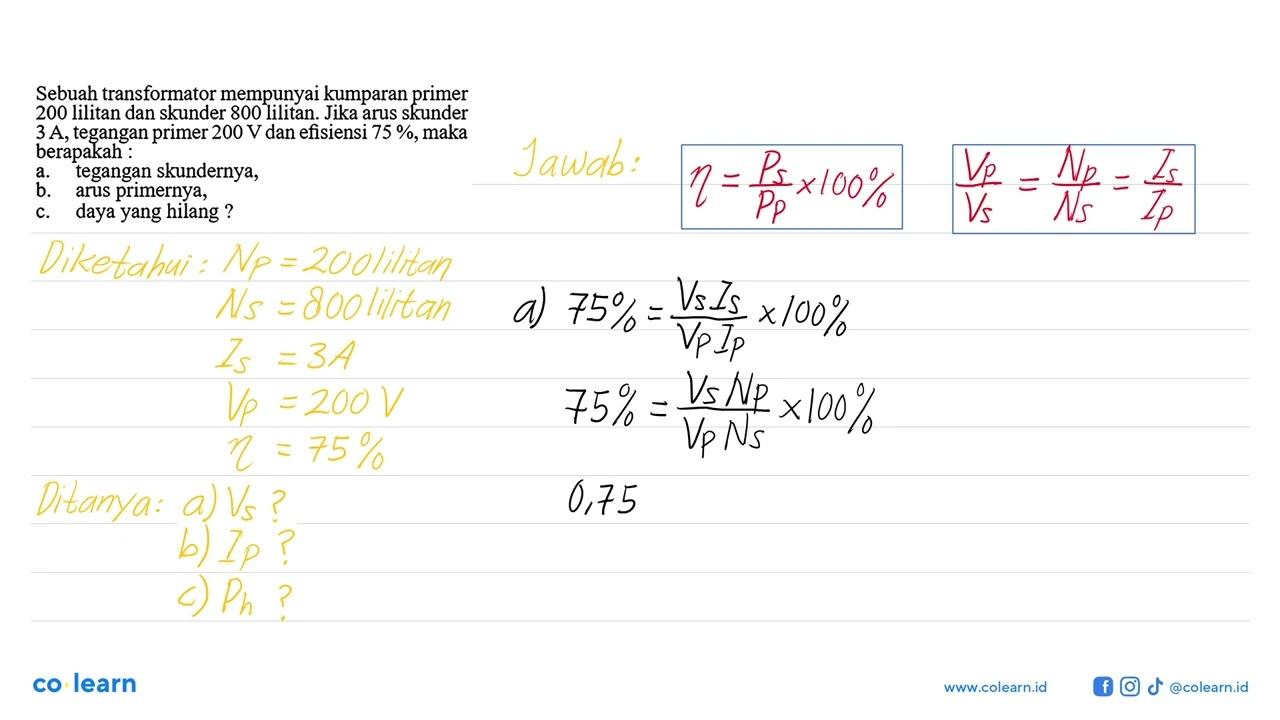 Sebuah transformator mempunyai kumparan primer
200 lilitan dan skunder 800 lilitan. Jika arus skunder
3 A, tegangan primer 200 V dan efisiensi 75 %, maka
berapakah :
a. tegangan skundernya,
b. arus primernya,
c. daya yang hilang ?
Diketahui : Np = 200 lilitan
Ns = 800 lilitan
Is = 3A
Vp = 200 V
η = 75%
Ditanya: a) Vs ?
b) Ip ?
c) Ph ?
Jawab:
η = Ps/Pp × 100%
Vp/Vs = Np/Ns = Is/Ip
a) 75% = Vs Is/Vp Ip × 100%
75% = Vs Np/Vp Ns × 100%
0,75
co learn
www.colearn.id
@colearn.id